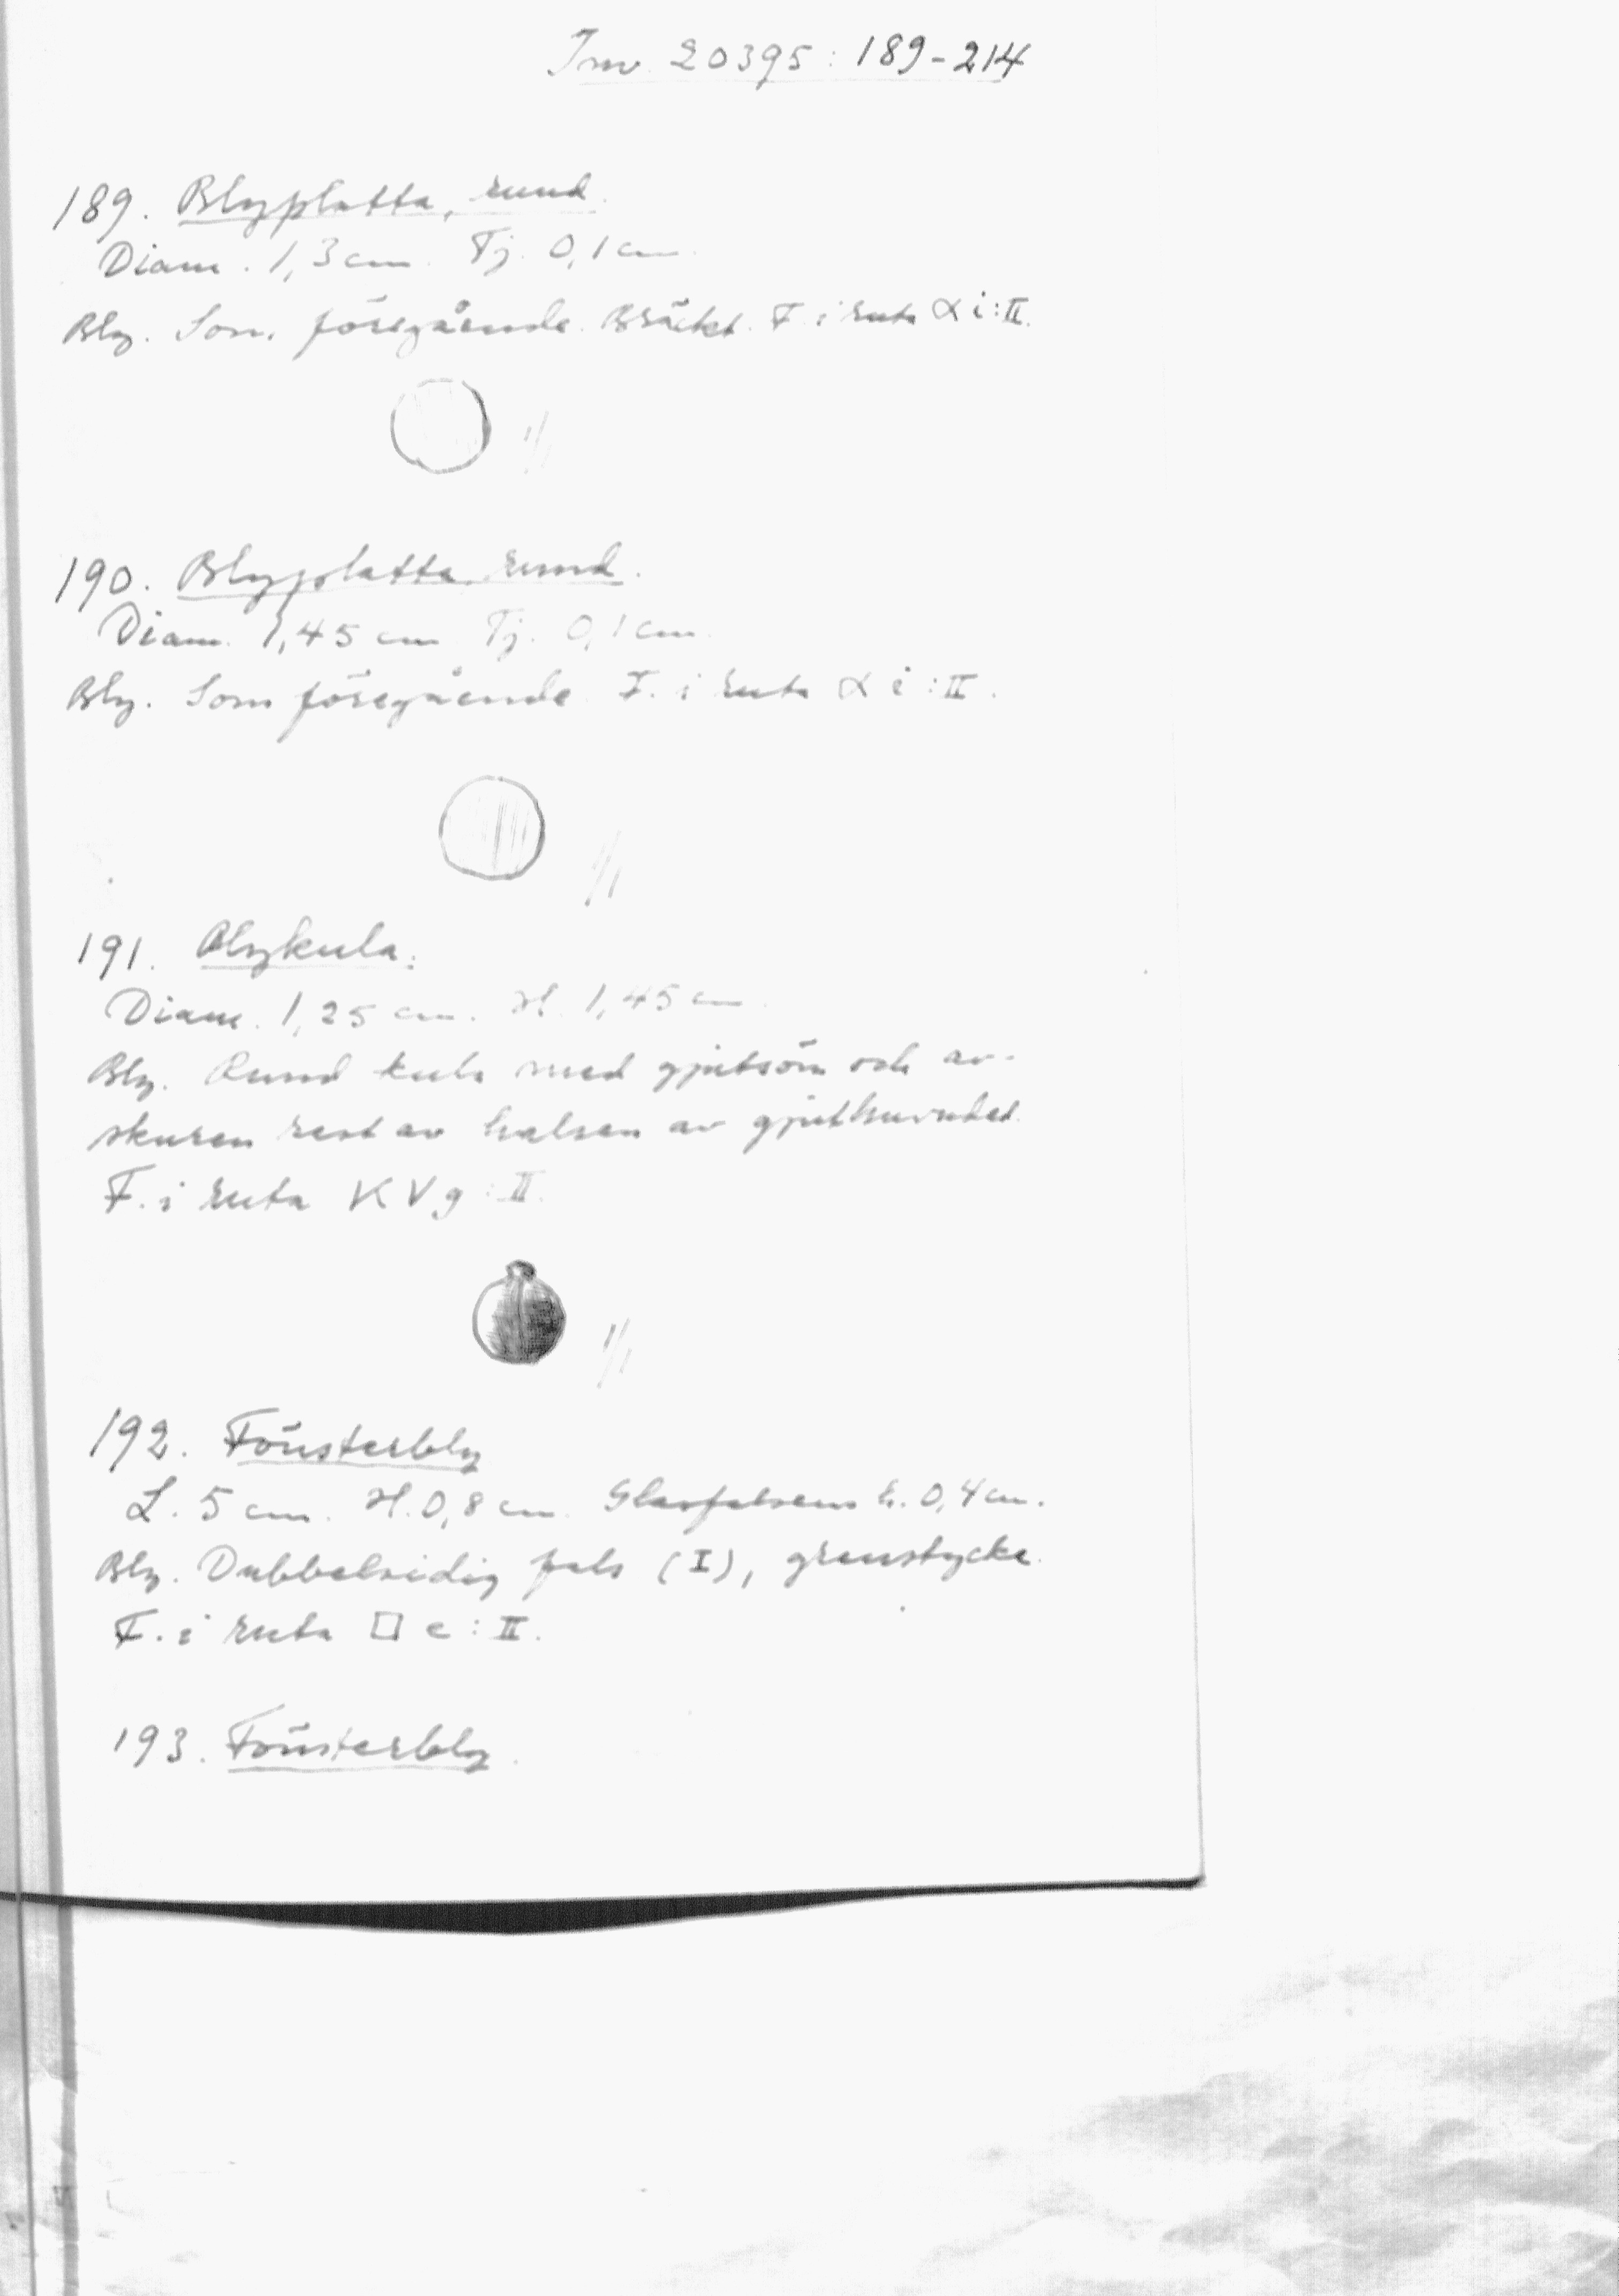 Inv. 20395: 189-214
189. Blyplatta, rund.
Diam. 1,3 cm. Tj. 0,1 cm.
Bly. Som föregående. Bräckt. F. i ruta α i:II.
1/1
190. Blyplatta, rund.
Diam. 1,45 cm Tj. 0,1 cm.
Bly. Som föregående F. i ruta α i:II.
1/1
191. Blykula.
Diam. 1,25 cm. H. 1,45 cm.
Bly. Rund kula med gjutsöm och av-
skuren rest av halsen av gjuthuvudet.
F. i ruta KVg:II.
1/1
192. Fönsterbly
L. 5 cm. H. 0,8 cm. Glasfalsens h. 0,4 cm.
Bly. Dubbelsidig fals (I), grenstycke.
F. i ruta □ e:II.
193. Fönsterbly.